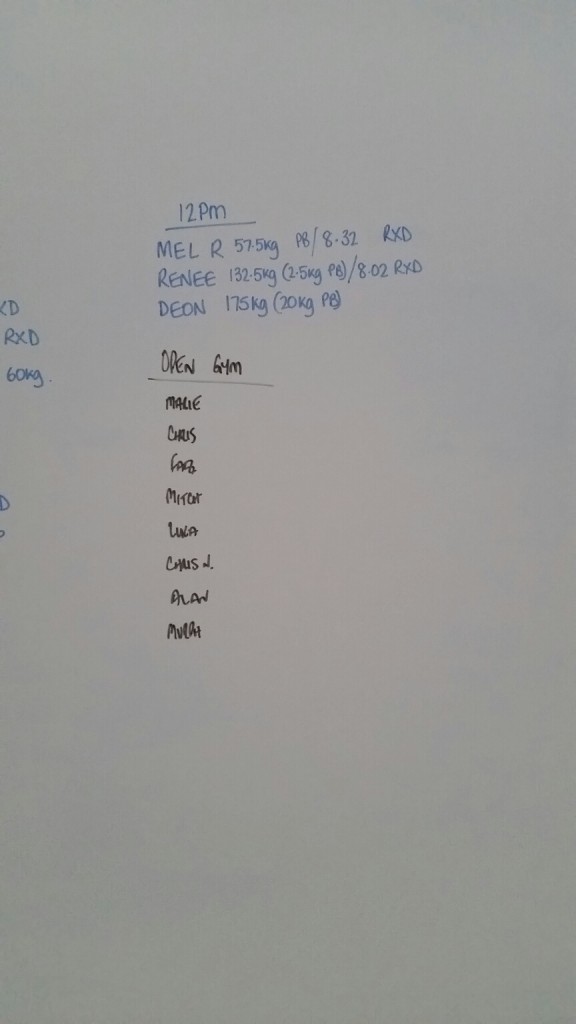 12PM
MEL R 57.5kg PB/8.32 RXD
RENEE 132.5kg (2.5kg PB)/8.02 RXD
DEON 175kg (20kg PB)
RXD
60kg.
OPEN GYM
MARIE
CHRIS
MITCH
LUKA
CHRIS J.
ALAN
MURPH